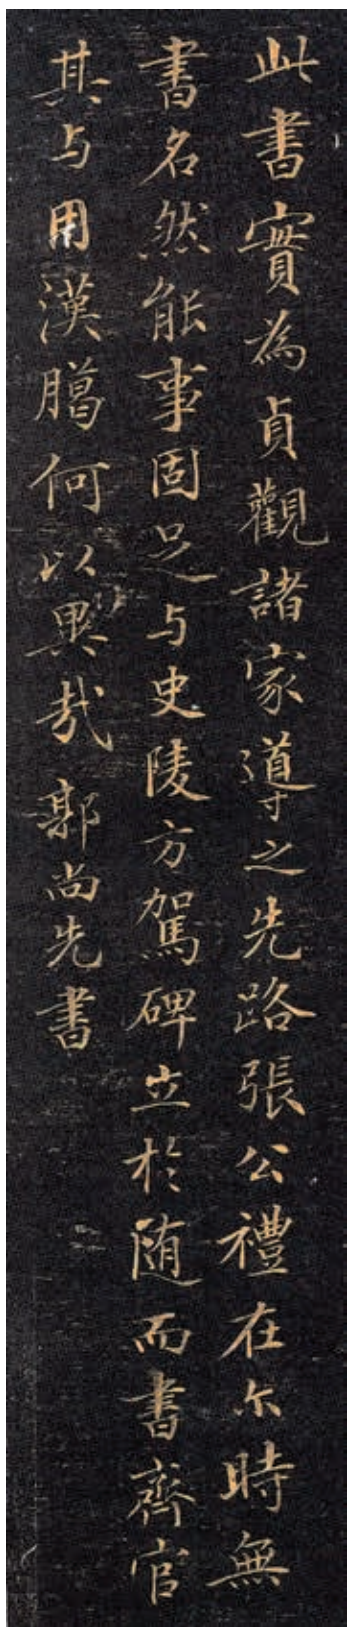 此書實為貞觀諸家導之先路張公禮在尒時無
書名然能事固足与史陵方駕碑立於随而書齊官
其与用漢臈何以異哉郭尚先書